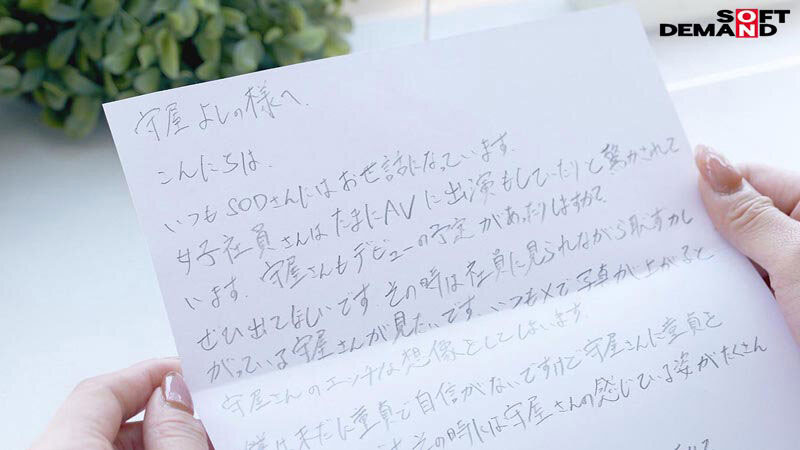 SOFT
DEMAND
守屋よしの様へ
こんにちは、
いつもSODさんにはお世話になっています。
女子社員さんはたまにAVに出演もしていたりと驚かされて
います。守屋さんもデビューの予定があったりしますか?
ぜひ出てほしいです。その時は社員に見られながら恥ずかし
がっている守屋さんが見たいです。いつもXで写真が上がると
守屋さんのエッチな想像をしてしまいます。
僕は未だに童貞で自信がないですけど守屋さんに童貞を
その時には守屋さんの感じている姿がたくさん